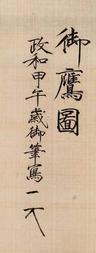 御鷹圖
政和甲午歲御筆寫一天